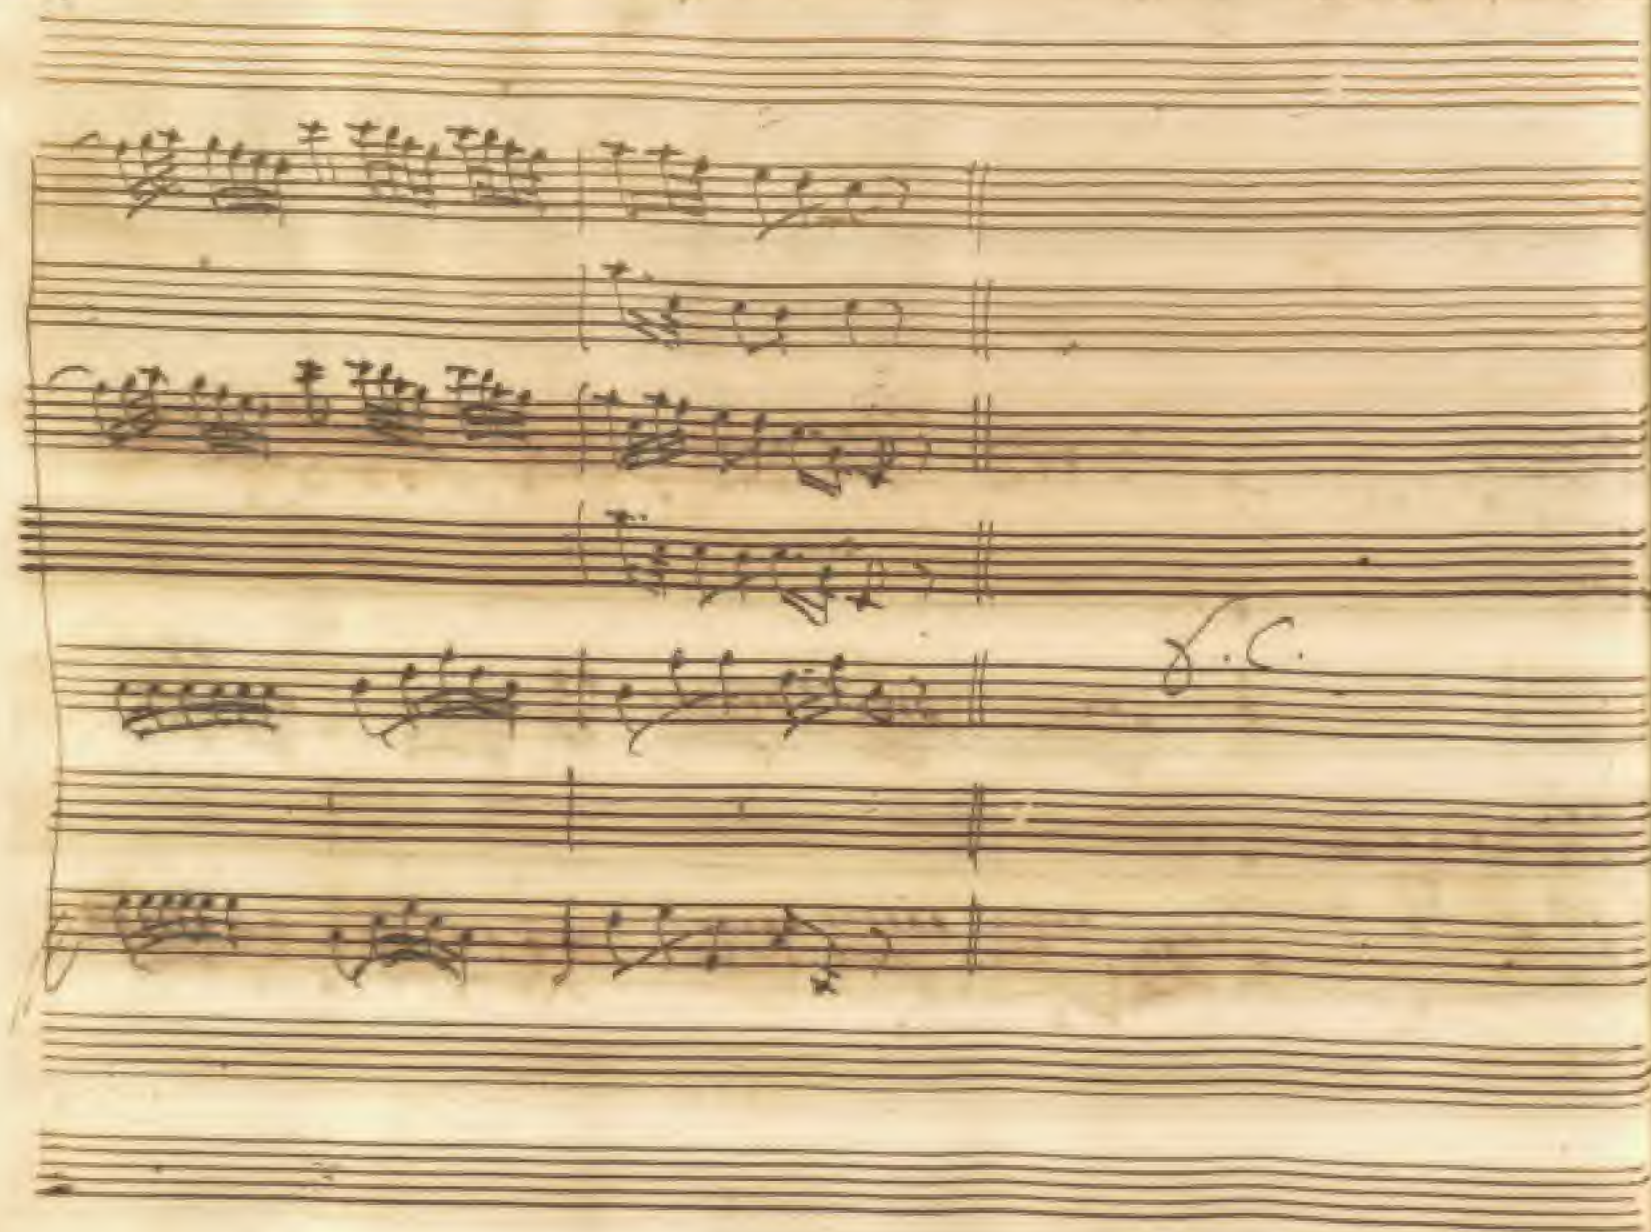 D. C.